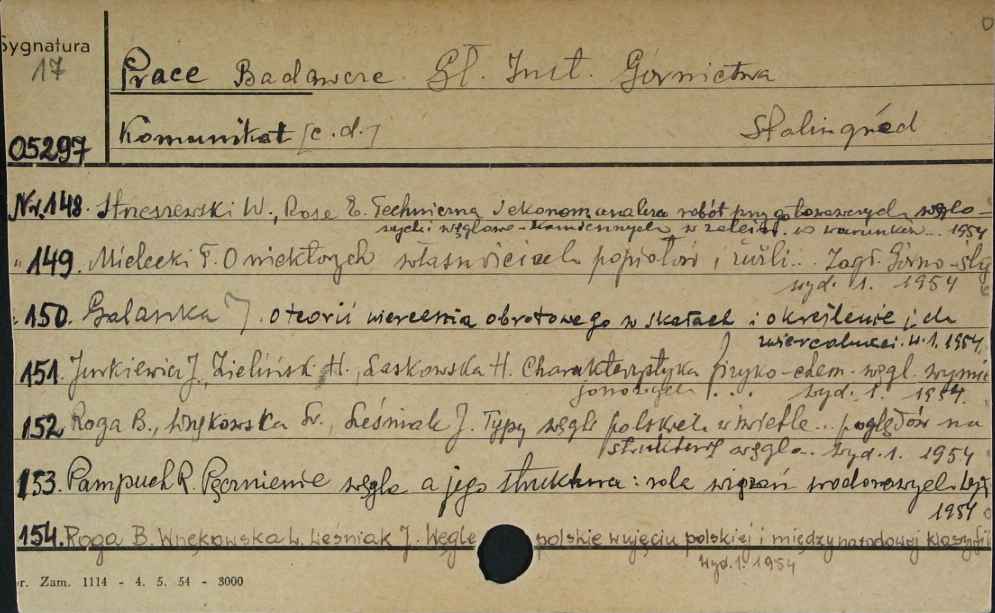 Sygnatura
17
Prace Badawcze Gł. Inst. Górnictwa
05297
Komunikat [c.d.]
Stalingród
Nr. 148. Streszewski W., Rose E. Techniczną i ekonom. analiza robót przygotowawczych węglo-
wych i węglowo-kamiennych w zależn. w warunkach... 1954
" 149. Mielecki T. O niektórych właściwościach popiołów i żużli... Zagł. Górno-Ślą
wyd. 1. 1954
" 150. Galanka J. O teorii wiercenia obrotowego w skałach i określenie ich
zwiercalności. w. 1. 1954.
151. Jurkiewicz J., Zielińsk H., Laskowska H. Charakterystyka fizyko-chem. węgl. wymie
jonowych ... wyd. 1. 1954.
152 Roga B., Wnękowska Ł., Leśniak J. Typy węgli polskich w świetle... poglądów na
strukturę węgla. wyd. 1. 1954
153. Pampuch R. Pęcznienie węgla a jego struktura: rola wiązań wodorowych
1954
154. Roga B. Wnękowska L. Leśniak J. Węgle polskie w ujęciu polskiej i międzynarodowej klasyfi
wyd. 1. 1954
r. Zam. 1114 - 4. 5. 54 - 3000